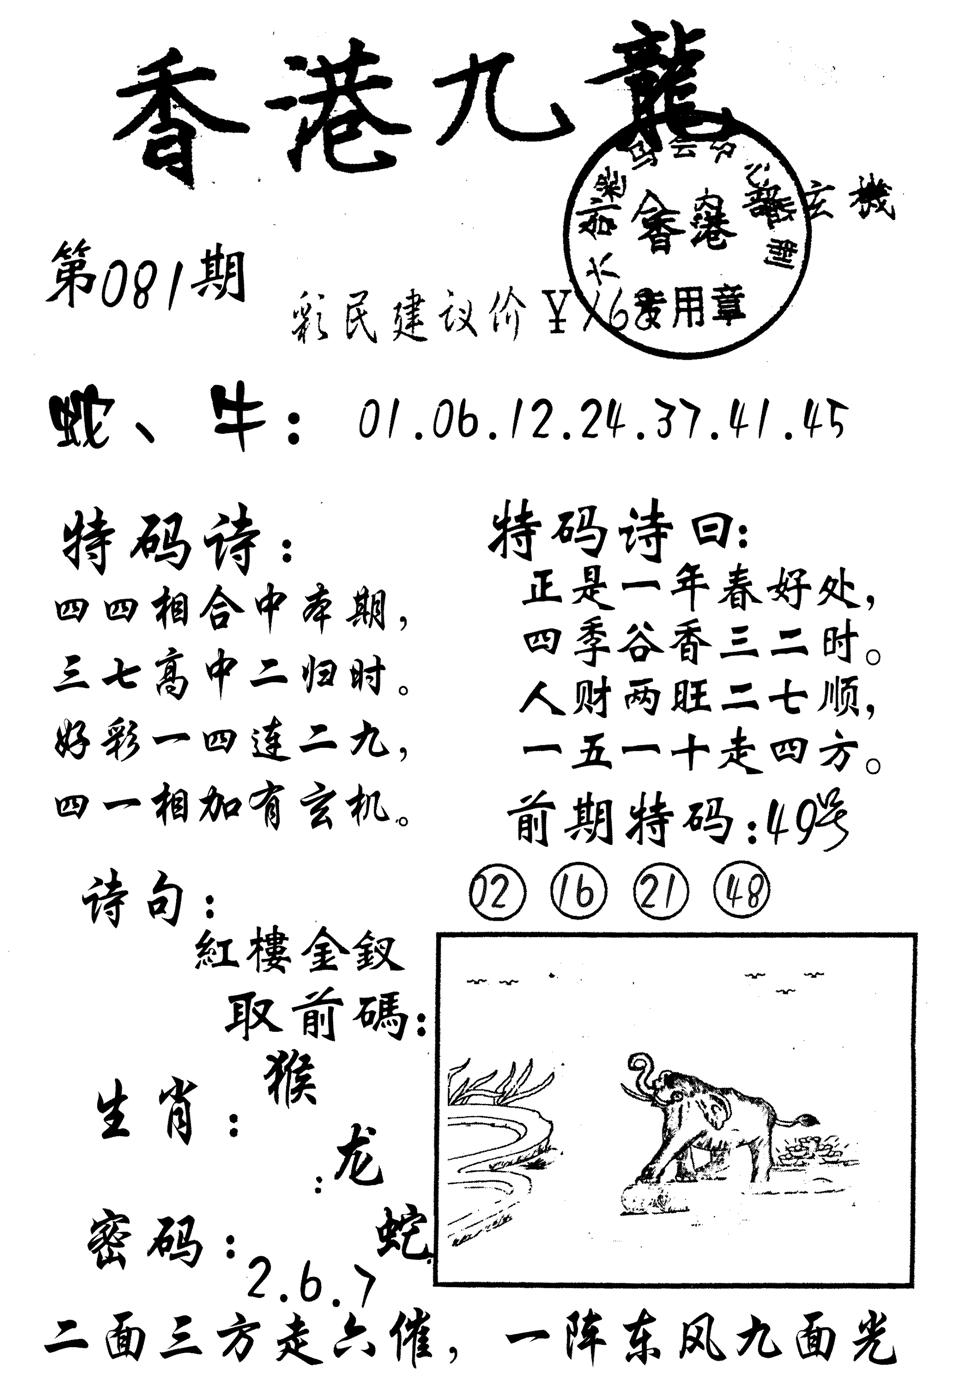 香港九龍
六合彩 馬会 中心 制
香港
内部玄機
专用章
第081期
彩民建议价¥168
蛇、牛：01.06.12.24.37.41.45
特码诗：
四四相合中本期，
三七高中二归时。
好彩一四连二九，
四一相加有玄机。
特码诗曰：
正是一年春好处，
四季谷香三二时。
人财两旺二七顺，
一五一十走四方。
前期特码：49号
02 16 21 48
诗句：
紅樓金釵
取前碼：
生肖：猴
：龙
蛇
密码：2.6.7
二面三方走六催，一阵东风九面光